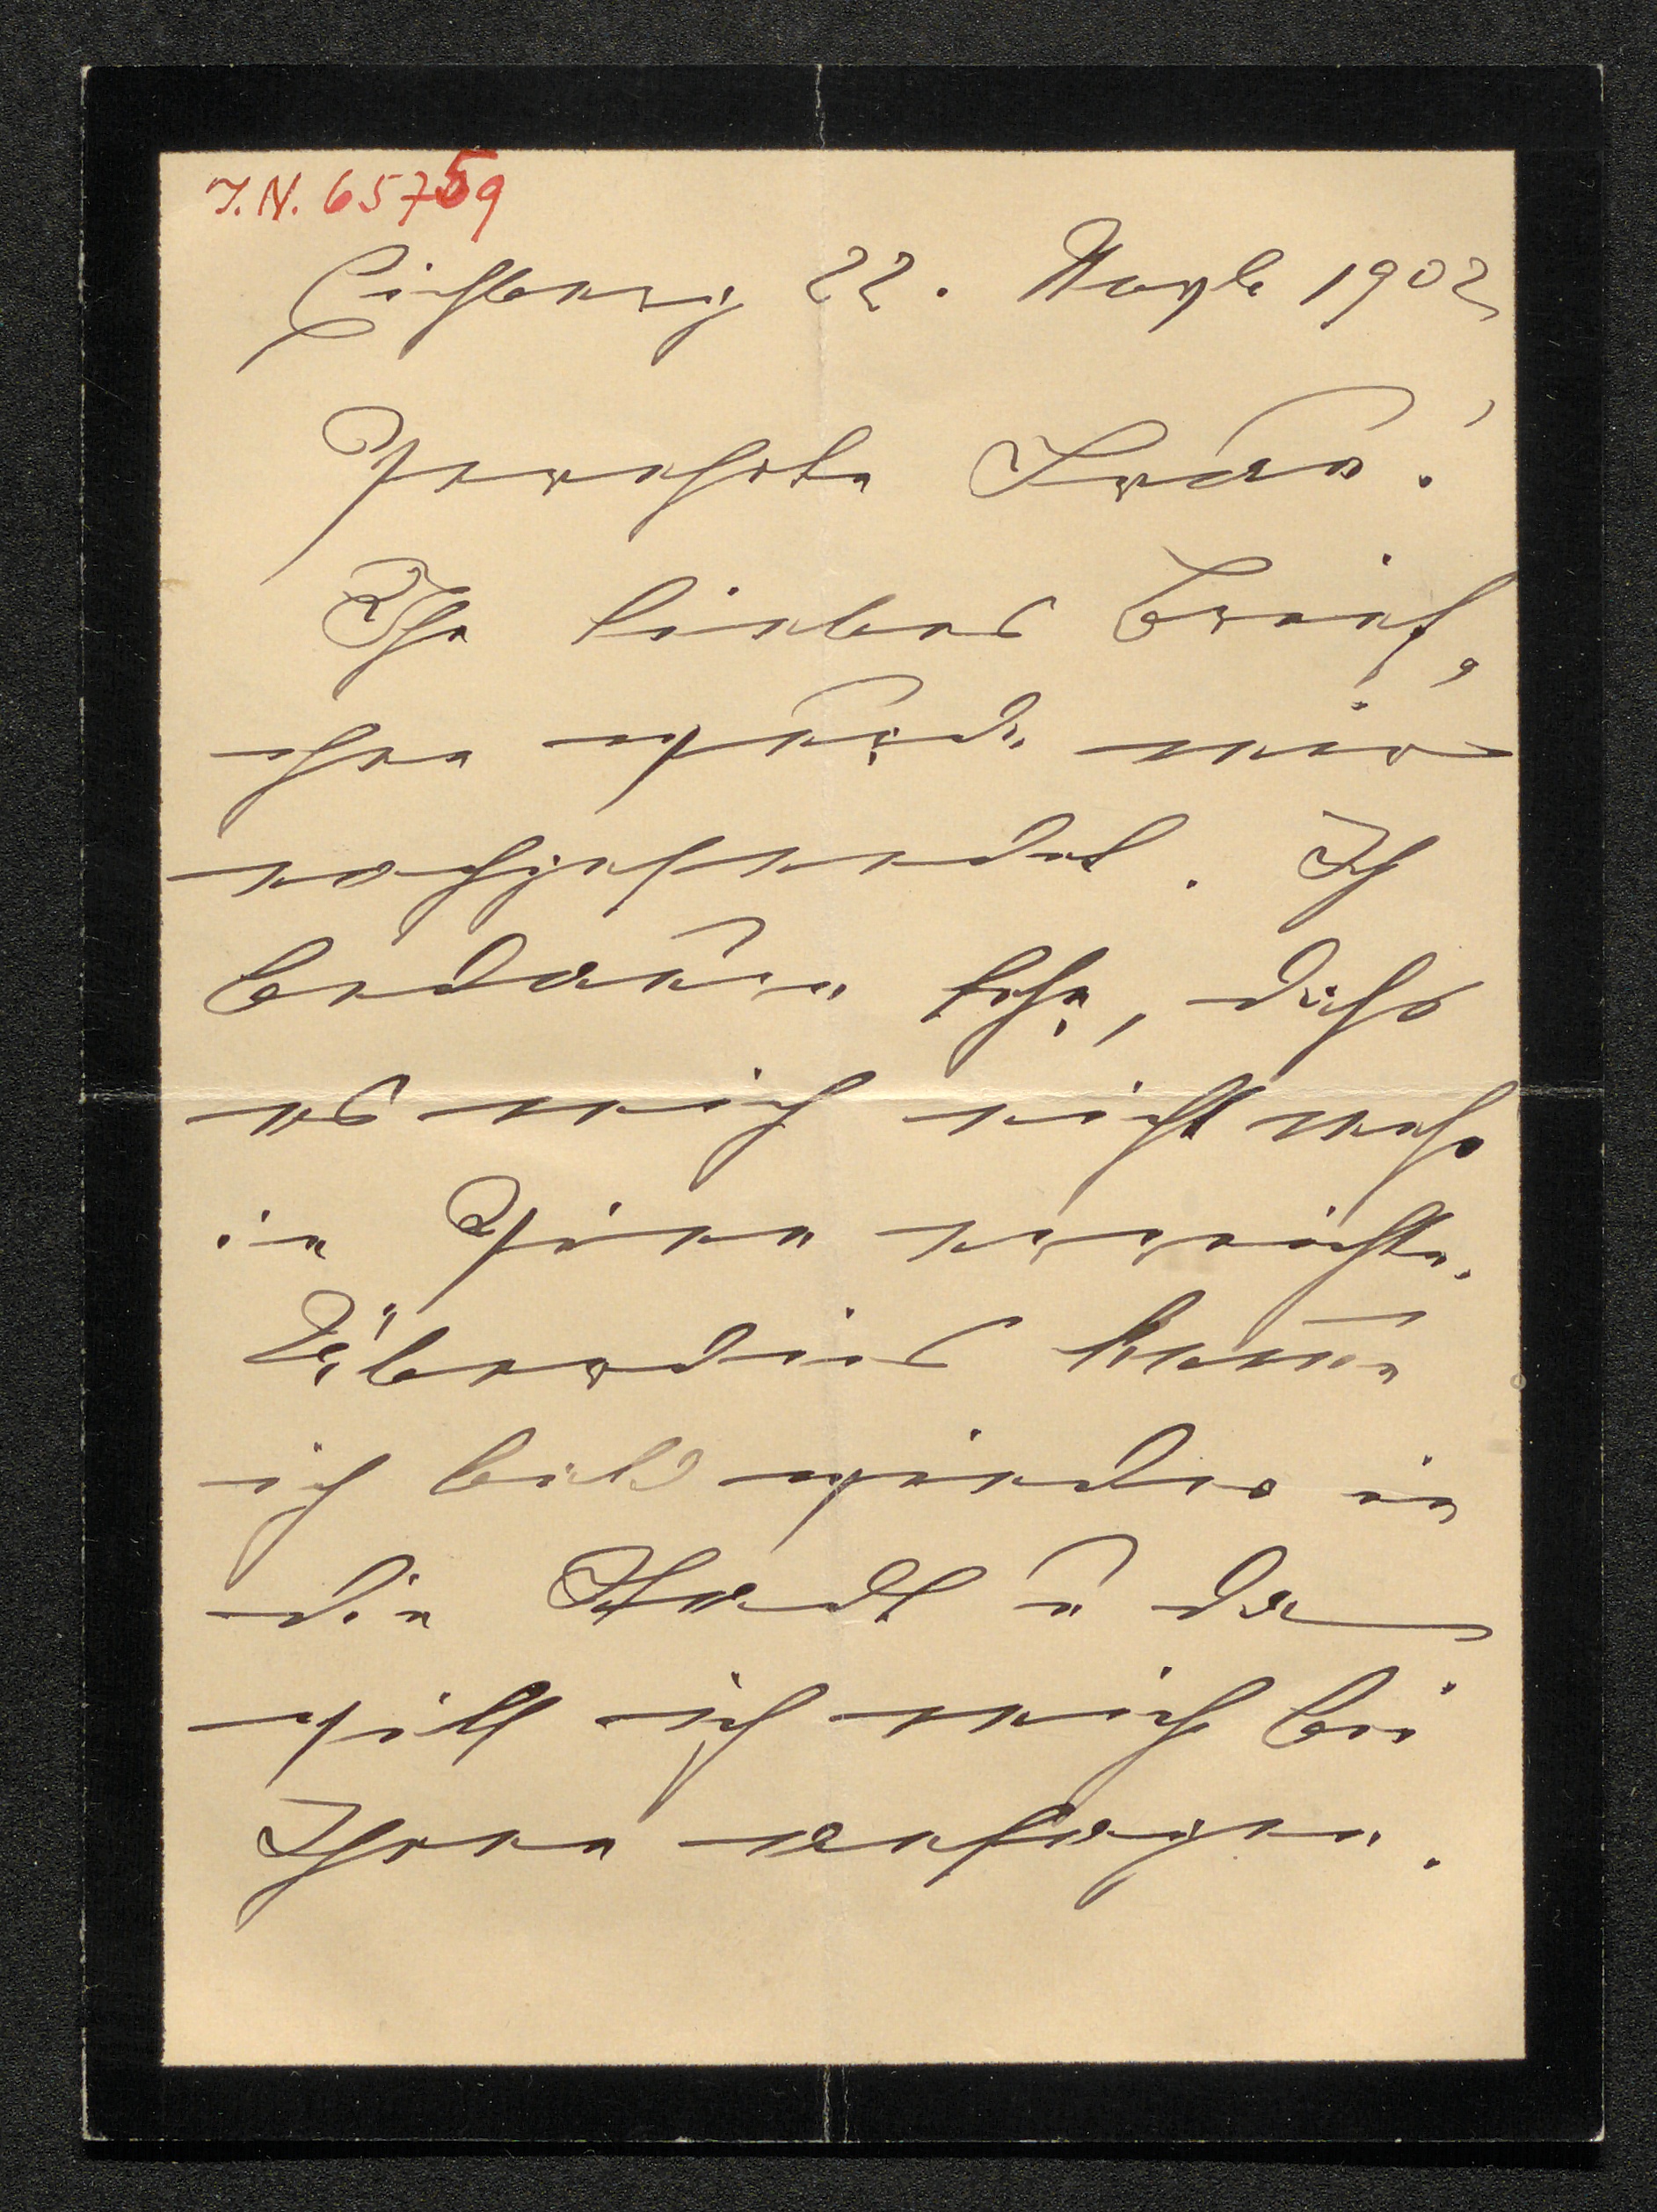 I.N. 65759
Eichberg 22. Mayb 1902
Verehrte Frau!
Ihr liebes Brief,
chen wurde mir
nachgesendet. Ich
bedaure sehr, dass
es mich nicht mehr
in Wien erreichte.
Überdies komme
ich bald wieder in
die Stadt u da
will ich mich bei
Ihnen ansagen.